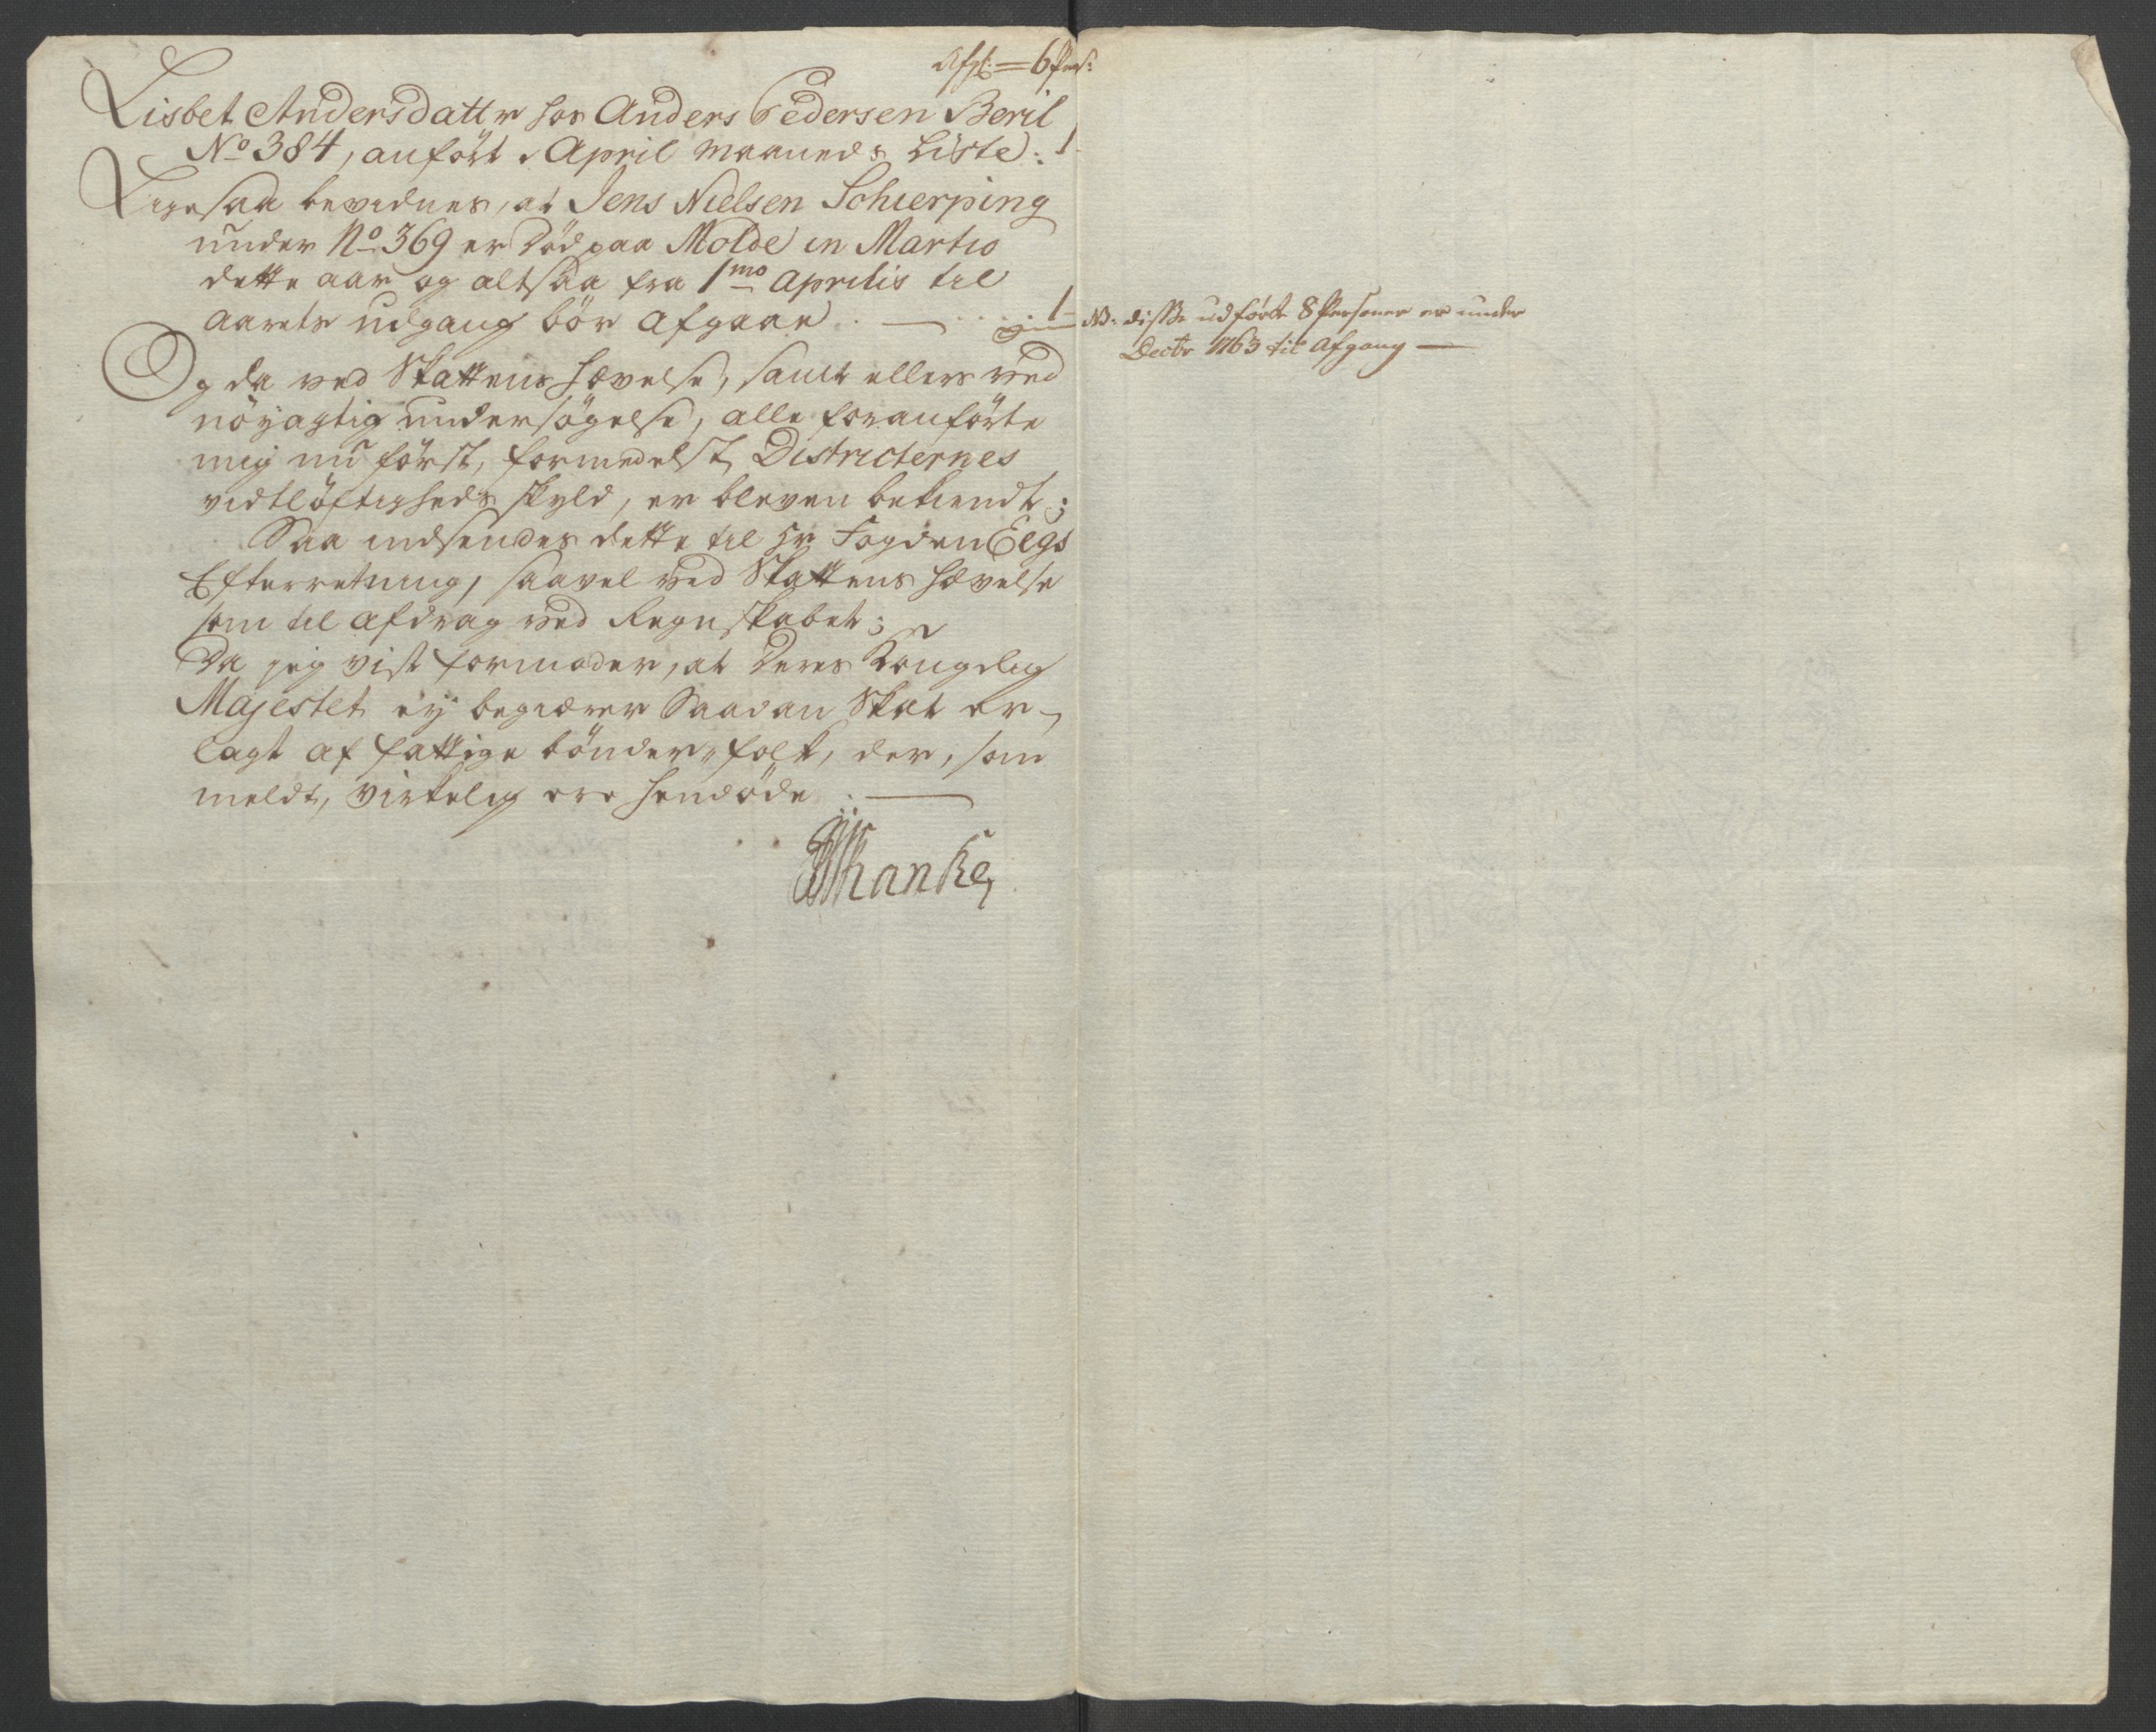 = 6 Pers:
Lisbet Andersdatter hos Anders Pedersen Beril
No 384, anført i April Maaneds Liste: 1
Ligesaa bevidnes, at Jens Nielsen Schierping
under No 369 er Død paa Molde in Martio
dette aar og altsaa fra 1mo Aprilis til
Aarets udgang bör afgaae . — . . . . 1
Og da ved Skattens Hævelse, samt ellers ved
nöyagtig undersögelse, alle foranförte
mig nu först, formedelst Districternes
vidtlöftigheds skyld, er bleven bekiendt;
Saa indsendes dette til Hr Fogden Eegs
Efterretning, saavel ved Skattens Hævelse
som til afdrag ved Regnskabet;
Da jeg vist formoder, at Deres Kongelig
Majestet ey begiærer Saadan Skat er-
lagt af fattige bönder-folk, der, som
meldt, virkelig ere hendöde . —
NB. disse udførte 8 Personer er under
Decbr 1763 til Afgang —